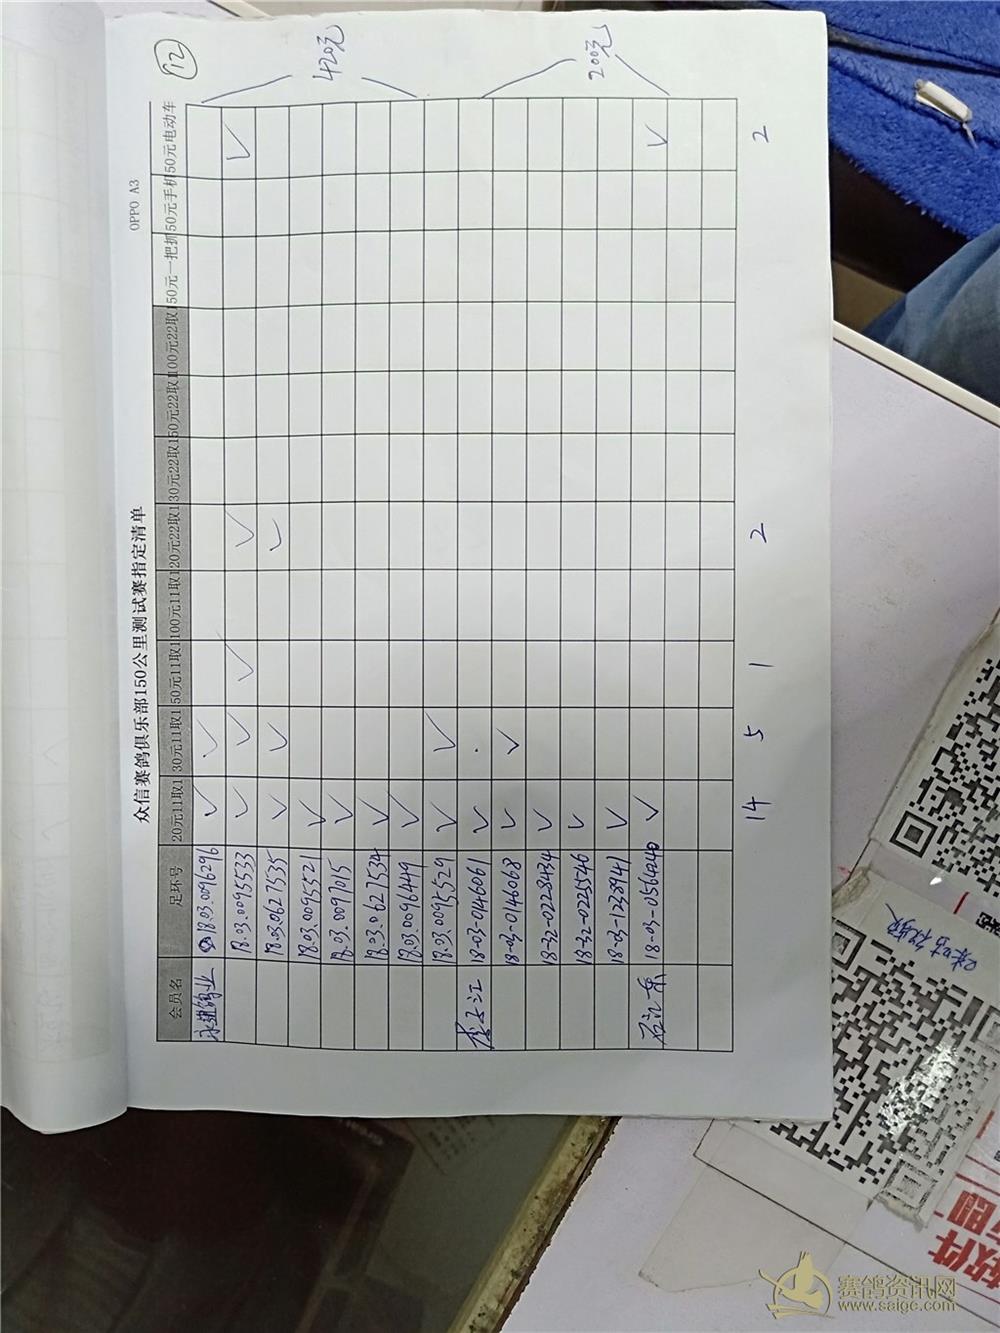 12
420元
200元
OPPO A3
众信赛鸽俱乐部150公里测试赛指定清单
会员名 足环号 20元11取1 30元11取1 50元11取1 100元11取1 20元22取1 30元22取1 50元22取1 100元22取1 50元一把抓 50元手机 50元电动车
鸽业 18.03.0096296 ✓ ✓
18.03.0095533 ✓ ✓ ✓ ✓ ✓
18.03.0627535 ✓ ✓ ✓
18.03.0095521 ✓
18.03.0097015 ✓
18.03.0627534 ✓
18.03.0096449 ✓
18.03.0095529 ✓ ✓
李占江 18-03-0146061 ✓
18-03-0146068 ✓ ✓
18-32-0228434 ✓
18-32-0225546 ✓
18-03-1238941 ✓
18-03-0564240 ✓ ✓
14 5 1 2 2
软件
赛鸽资讯网
www.saige.com